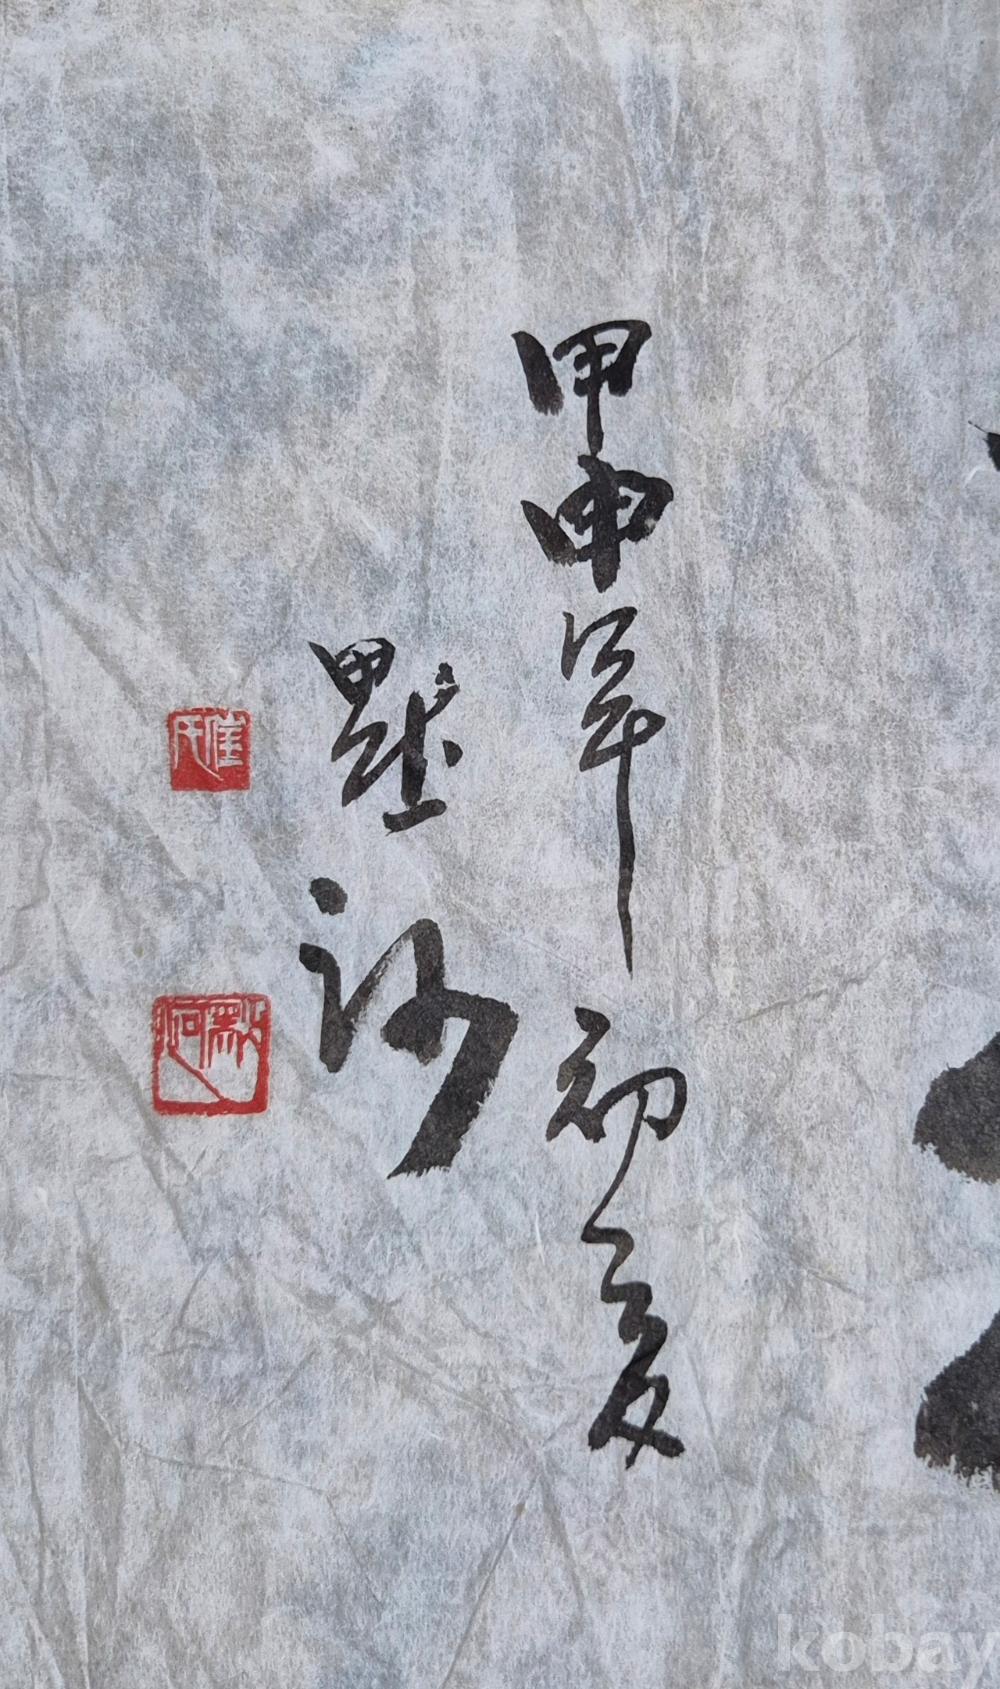 甲申年初夏
默河
崔氏
默河
kobay